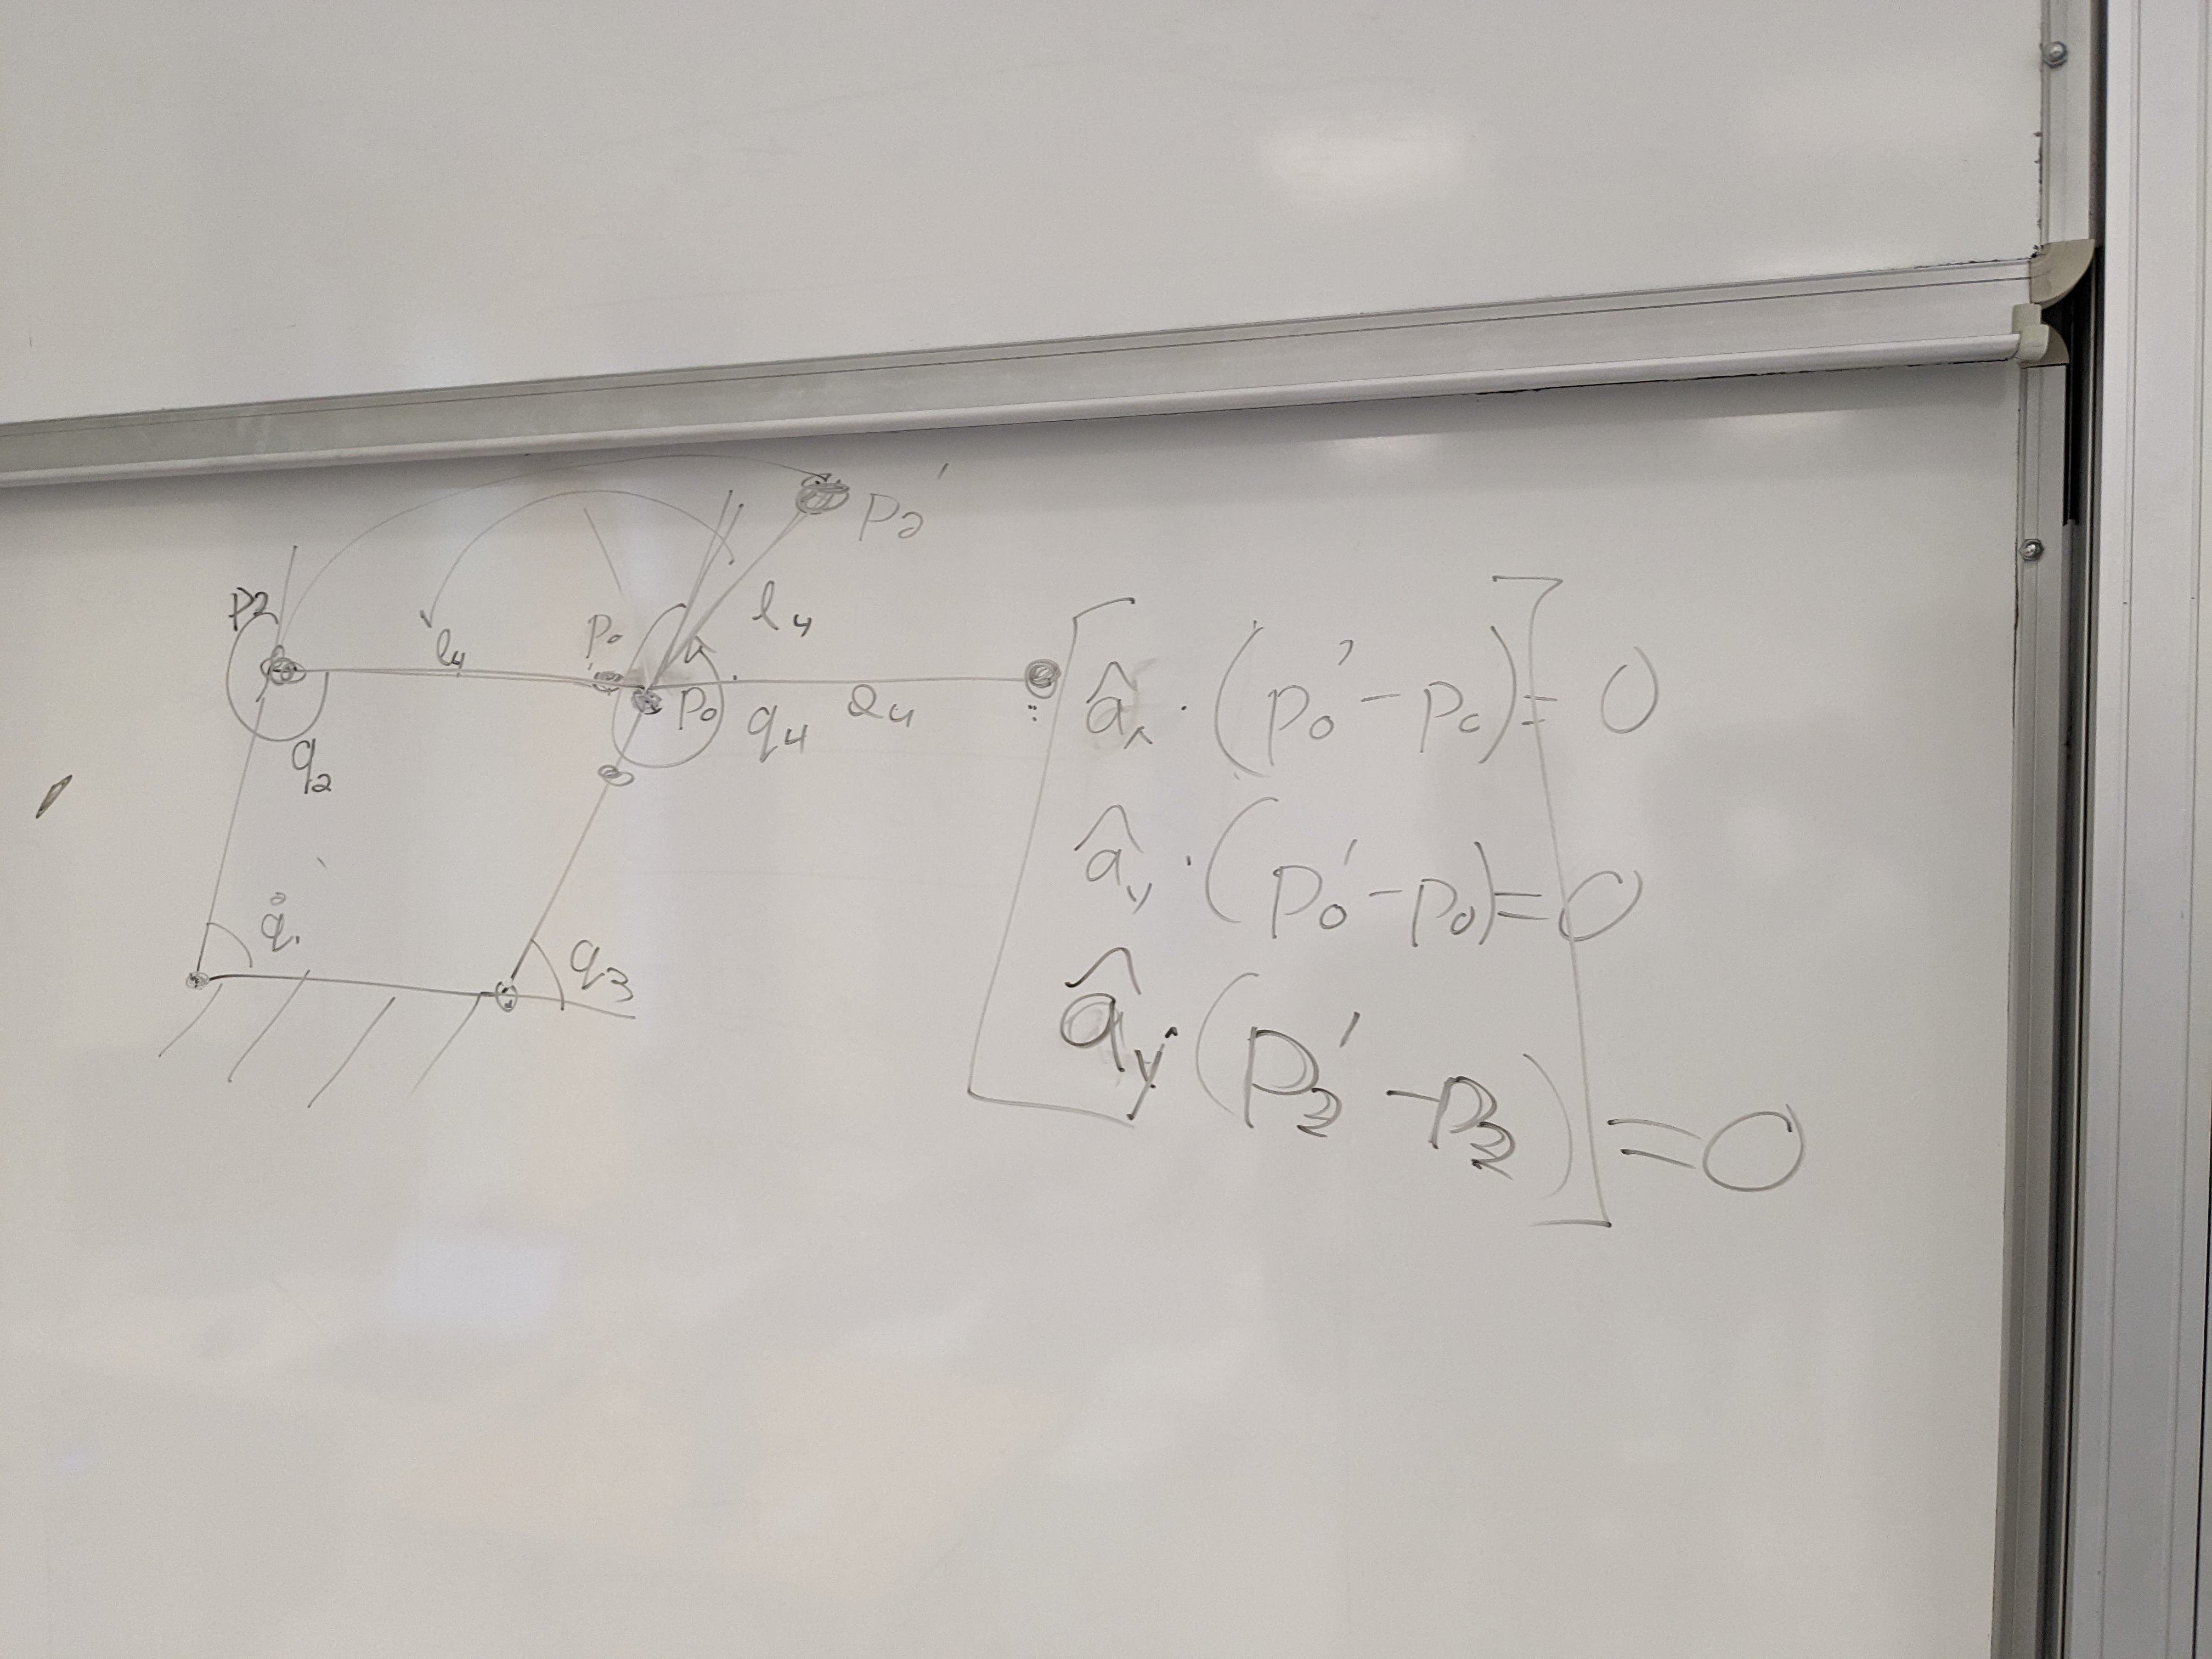 p₂'
p2
l₄
p₀'
l₄
p₀
q₄
l₄
q₂
q₁
q₃
âₓ · (p₀' - p₀) = 0
â_y · (p₀' - p₀) = 0
â_y · (p₂' - p₂) = 0